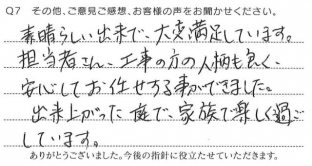 Q7 その他、ご意見ご感想、お客様の声をお聞かせください。
素晴らしい出来で、大変満足しています。
担当者さん、工事の方の人柄も良く、
安心してお任せする事ができました。
出来上がった庭で、家族で楽しく過ご
しています。
ありがとうございました。今後の指針に役立たせていただきます。